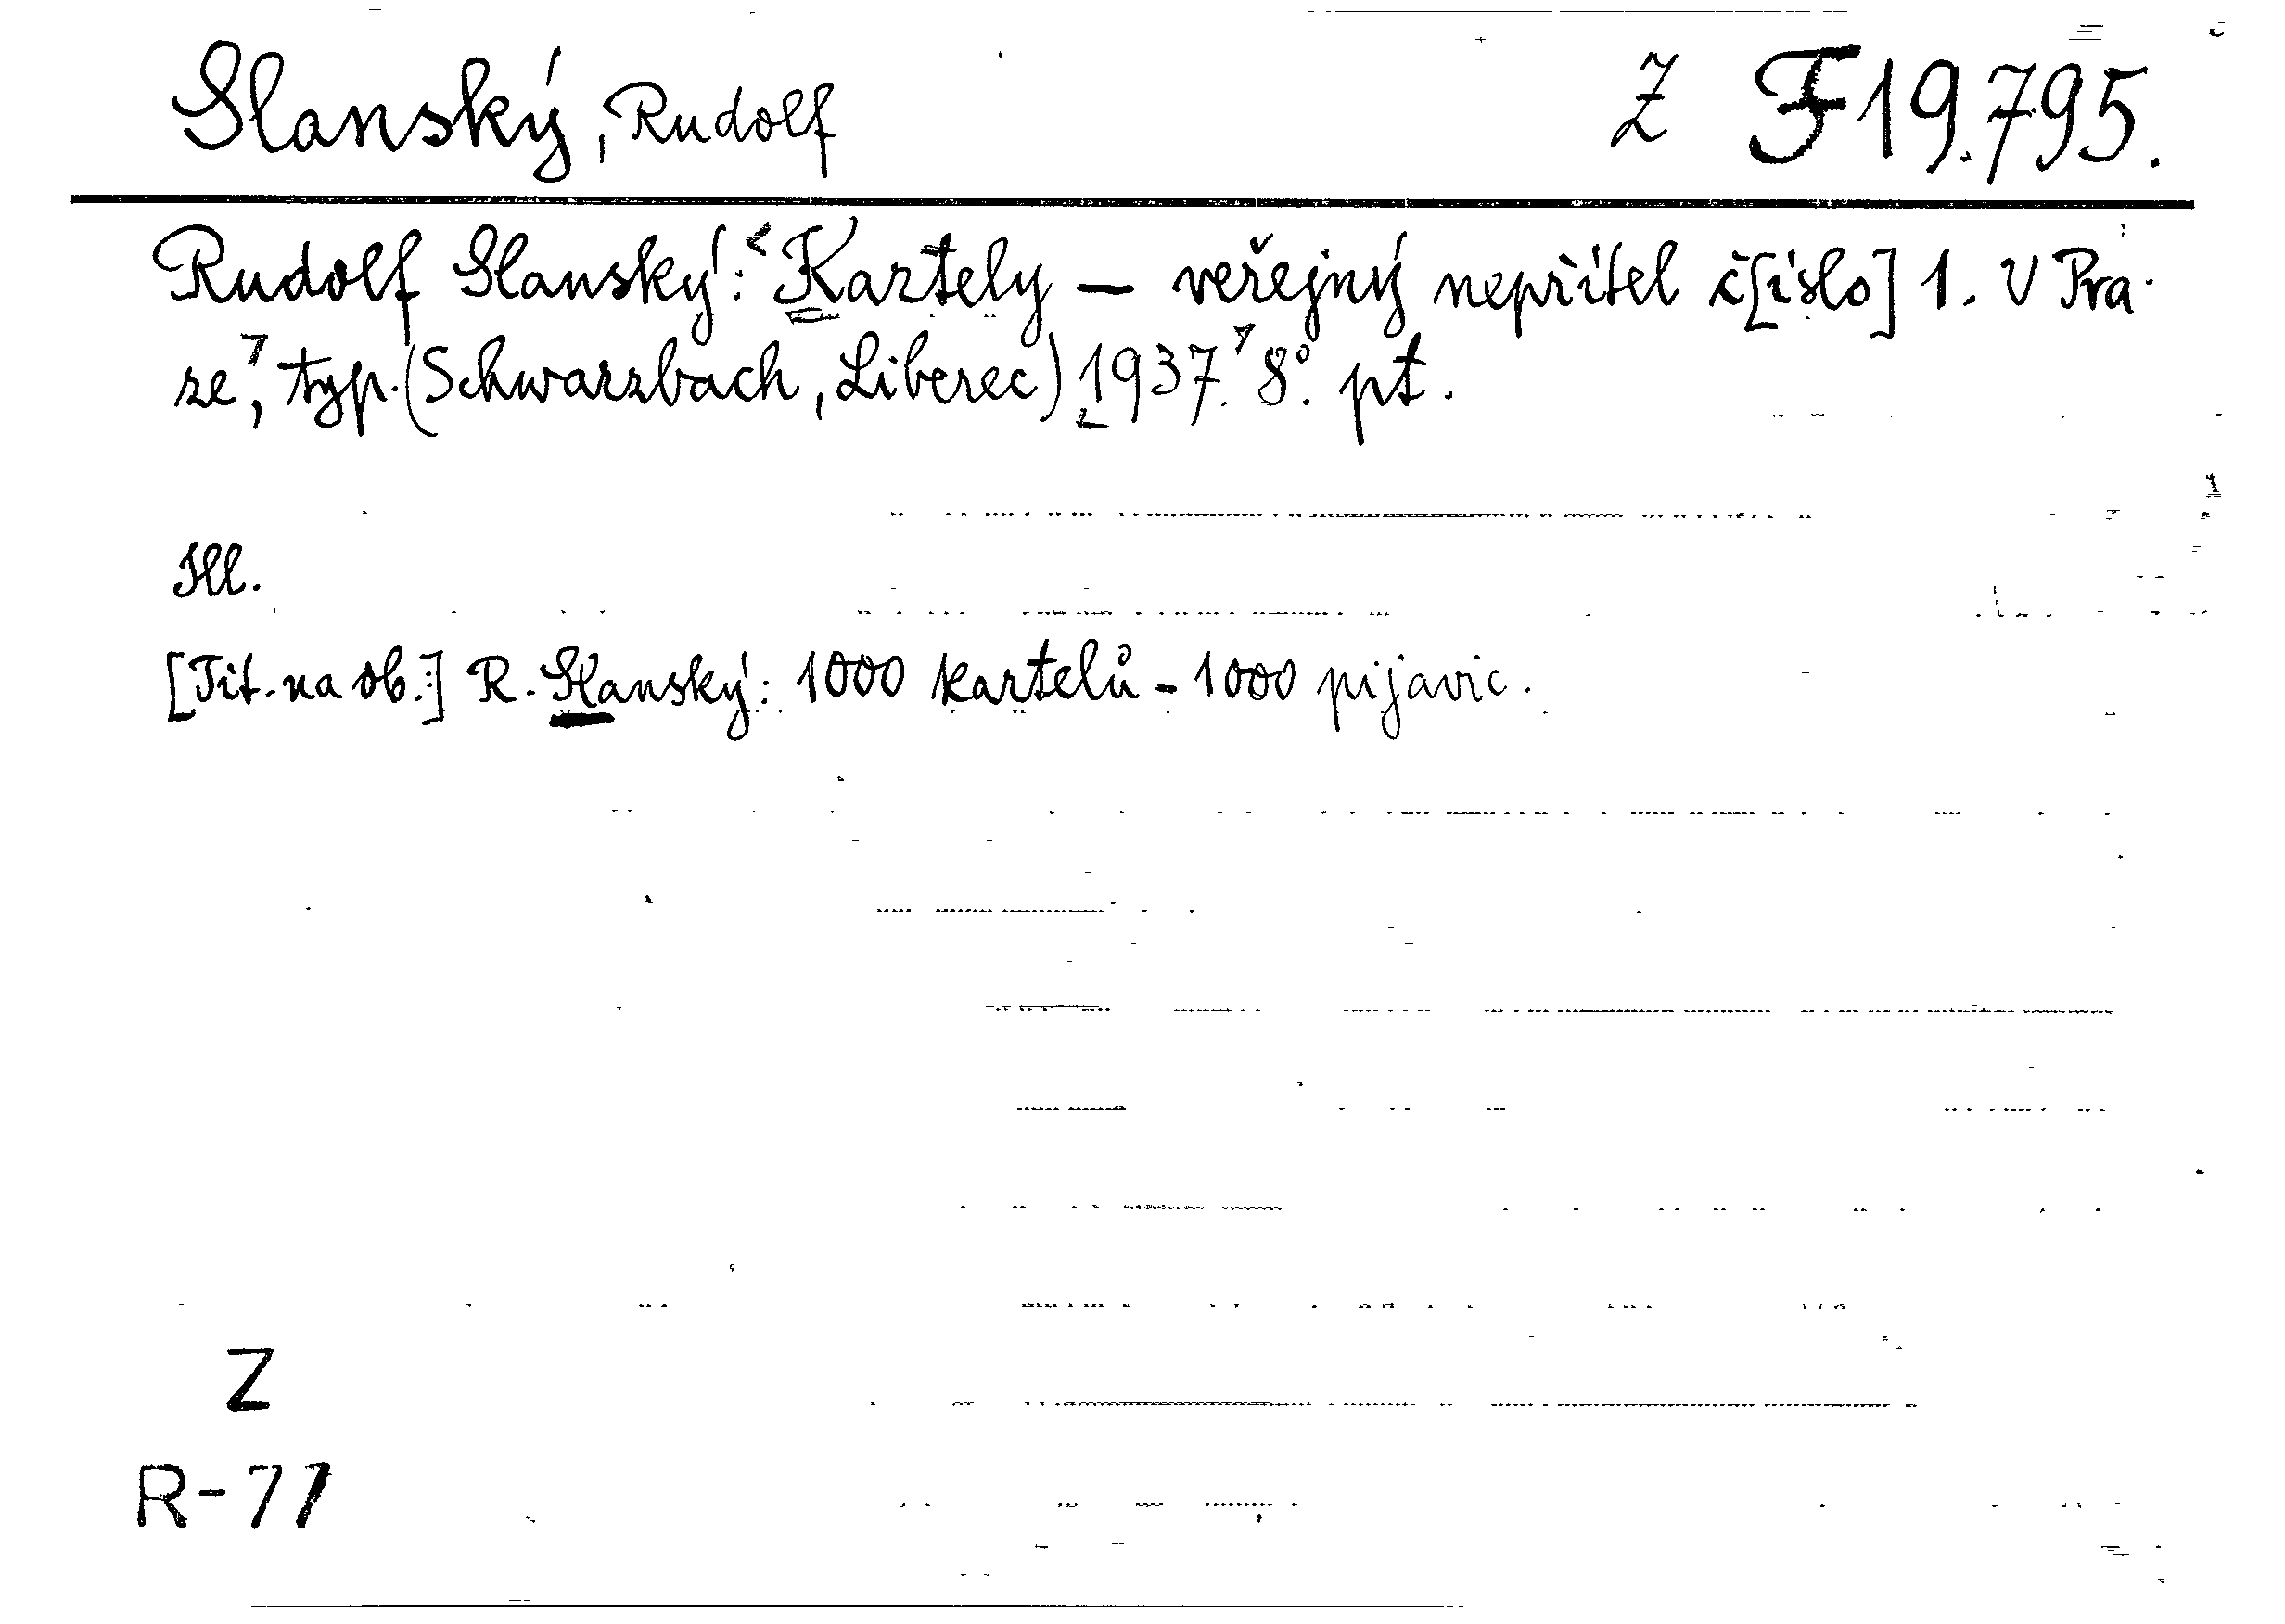 Slanský, Rudolf Z F 19.795.
Rudolf Slanský: Kartely – veřejný nepřítel č[íslo] 1. V Pra-
ze, typ. (Schwarzbach, Liberec) 1937. 8°. pt.
Ill.
[Tit. na ob.:] R. Slanský: 1000 kartelů - 1000 pijavic.
Z
R-77